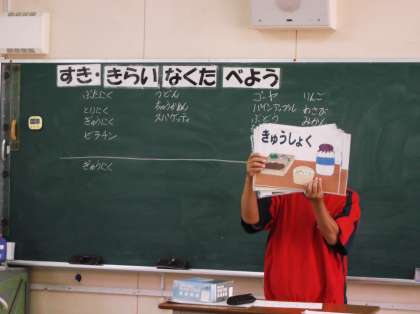 すき・きらいなくたべよう
ぶたにく
とりにく
ぎゅうにく
ゼラチン
ぎゅうにく
うどん
ちゅうかめん
スパゲティ
ゴーヤ
パインアップル
ぶどう
りんご
わさび
みかん
きゅうしょく